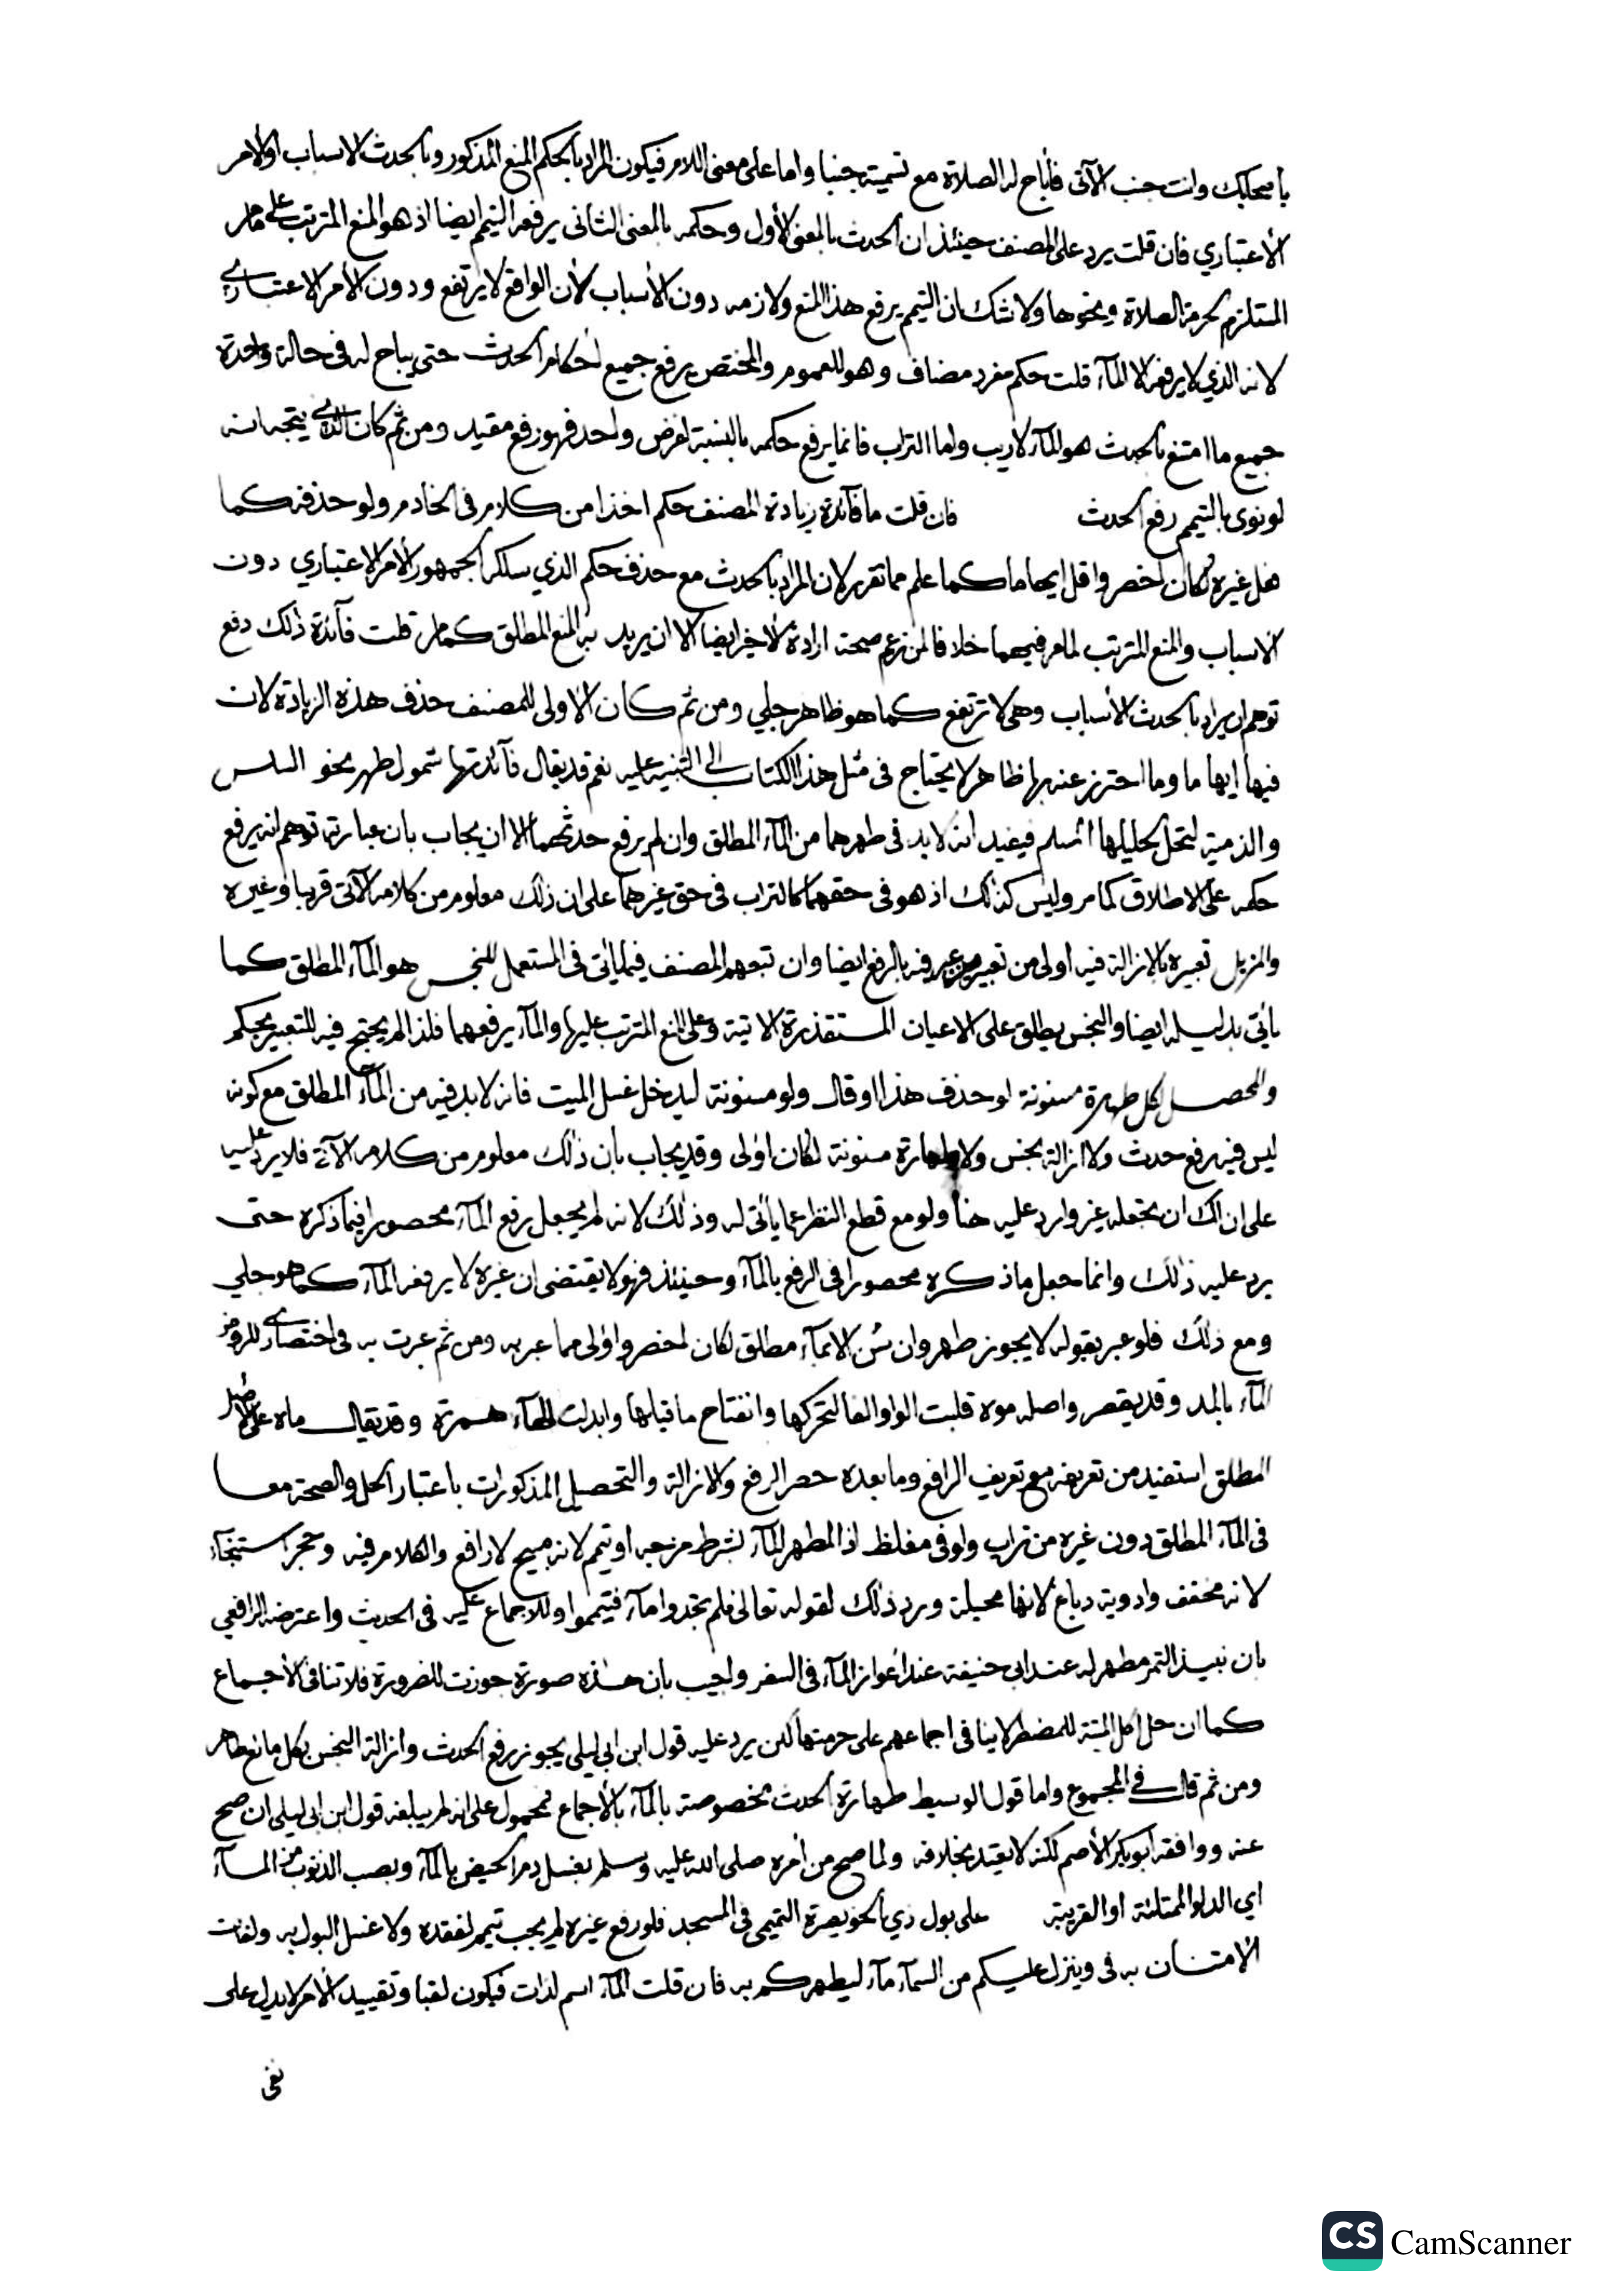 بأصحابك وانت جنب الآتي فأباح له الصلاة مع تسميته جنبا واما على معنى اللام فيكون المراد بالحكم المنع المذكور وبالحدث الاسباب او الامر
الاعتباري فان قلت يرد على المصنف حينئذ ان الحدث بالمعنى الأول وحكمه بالمعنى الثاني يرفعه التيمم ايضا اذ هو المنع المترتب على مامر
المستلزم لحرمة الصلاة ونحوها ولا شك ان التيمم يرفع هذا المنع ولازمه دون الأسباب لأن الواقع لا يرتفع ودون الأمر الاعتباري
لانه الذي لا يرفعه الا المآء قلت حكم مفرد مضاف وهو للعموم والمختص برفع جميع احكام الحدث حتى يباح له في حالة واحدة
جميع ما امتنع بالحدث هو المآء لا ريب واما التراب فانما يرفع حكمه بالنسبة لفرض واحد فهو رفع مقيد ومن ثم كان الذي يتجه انه
لو نوى بالتيمم رفع الحدث فان قلت ما فآئدة زيادة المصنف حكم اخذا من كلام في الخادم ولو حذفه كما
فعل غيره لكان اخصر واقل ايهاما كما علم مما تقرر لان المراد بالحدث مع حذف حكم الذي سلكه الجمهور الأمر الاعتباري دون
الاسباب والمنع المترتب لما مر فيهما خلافا لمن زعم صحة ارادة الاخير ايضا الا ان يريد به المنع المطلق كما مر قلت فآئدة ذلك دفع
توهم ان يراد بالحدث الأسباب وهي لا ترتفع كما هو ظاهر جلي ومن ثم كان الاولى للمصنف حذف هذه الزيادة لان
فيها ايهاما وما احترز عنه بها ظاهر لا يحتاج في مثل هذا الكتاب الى التنبيه عليه نعم قد يقال فآئدتها شمول طهر نحو السلس
والذمية لتحل لحليلها المسلم فيفيد انه لا بد في طهرهما من المآء المطلق وان لم يرفع حدثهما الا ان يجاب بان عبارته توهم انه يرفع
حكمه على الاطلاق كما مر وليس كذلك اذ هو في حقهما كالتراب في حق غيرهما على ان ذلك معلوم من كلامه الآتي قريبا وغيره
والمزيل تعبيره بالازالة فيه اولى من تعبير من عبر فيه بالرفع ايضا وان تبعهم المصنف فيما يأتي في المستعمل للنجس هو المآء المطلق كما
يأتي بدليله ايضا والنجس يطلق على الاعيان المستقذرة الاتية وعلى المنع المترتب عليها والمآء يرفعهما فلذا لم يحتج فيه للتعبير بحكم
والمحصل لكل طهارة مسنونة لو حذف هذا او قال ولو مسنونة ليدخل غسل الميت فانه لا بد فيه من المآء المطلق مع كونه
ليس فيه رفع حدث ولا ازالة نجس ولا طهارة مسنونة لكان اولى وقد يجاب بأن ذلك معلوم من كلامه الآتي فلا يرد عليه
على ان لك ان تجعله غير وارد عليه هنا ولو مع قطع النظر عما يأتي له وذلك لانه لم يجعل رفع المآء محصورا فيما ذكره حتى
يرد عليه ذلك وانما جعل ما ذكره محصورا في الرفع بالمآء وحينئذ فهو لا يقتضي ان غيره لا يرفعه المآء كما هو جلي
ومع ذلك فلو عبر بقوله لا يجوز طهر وان سن الا بمآء مطلق لكان اخصر واولى مما عبر به ومن ثم عبرت به في اختصاري للروض
المآء بالمد وقد يقصر واصله موه قلبت الواو الفا لتحركها وانفتاح ما قبلها وابدلت الهآء همزة وقد يقال ماه على الاصل
المطلق استفيد من تعريفه مع تعريف الرافع وما بعده حصر الرفع والازالة والتحصيل المذكورات باعتبار الحل والصحة معا
في المآء المطلق دون غيره من تراب ولو في مغلظ اذ المطهر المآء بشرط مزجه او تيمم لانه مبيح لا رافع والكلام فيه وحجر استنجآء
لانه مخفف وادوية دباغ لانها محيلة ويرد ذلك لقوله تعالى فلم تجدوا مآء فتيمموا وللاجماع عليه في الحدث واعترضه الرافعي
بان نبيذ التمر مطهر له عند ابي حنيفة عند اعواز المآء في السفر واجيب بان هذه صورة جوزت للضرورة فلا تنافي الاجماع
كما ان حل اكل الميتة للمضطر لا ينافي اجماعهم على حرمتها لكن يرد عليه قول ابن ابي ليلى يجوز رفع الحدث وازالة النجس بكل مائع طاهر
ومن ثم قال في المجموع واما قول الوسيط طهارة الحدث مخصوصة بالمآء بالاجماع فمحمول على انه لم يبلغه قول ابن ابي ليلى ان صح
عنه ووافقه ابو بكر الأصم لكنه لا يعتد بخلافه ولما صح من أمره صلى الله عليه وسلم بغسل دم الحيض بالمآء وبصب الذنوب من المآء
اي الدلو الممتلئة او القريبة على بول ذي الخويصرة التميمي في المسجد فلو رفع غيره لم يجب تيمم لفقده ولا غسل البول به ولفات
الامتنان به في وينزل عليكم من السمآء مآء ليطهركم به فان قلت المآء اسم لذات فيكون لقبا وتقييد الأمر لا يدل على
نفى
CS CamScanner